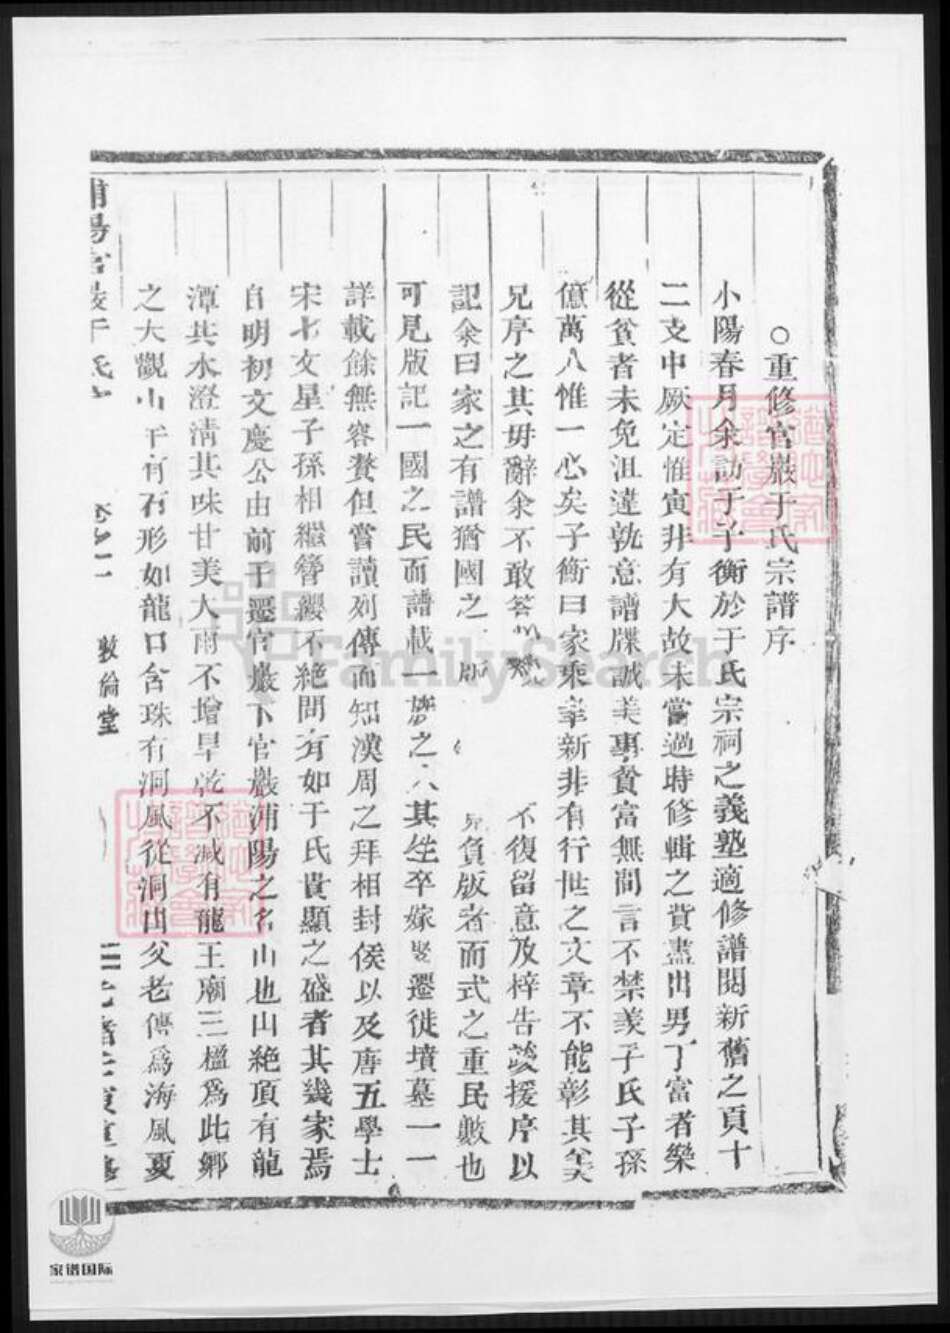 ○重修官巖于氏宗譜序
小陽春月余訪于子衡於于氏宗祠之義塾適修譜閱新舊之頁十
二支中厥定惟寅非有大故未嘗過時修輯之貲盡出男丁富者樂
從貧者未免沮違孰意譜牒誠美事貧富無間言不禁羨于氏子孫
億萬人惟一心矣子衡曰家乘幸新非有行世之文章不能彰其美
兄序之其毋辭余不敢答 不復留意及梓告竣援序以
記余曰家之有譜猶國之版 負版者而式之重民數也
可見版記一國之民而譜載一族之人其生卒嫁娶遷徙墳墓一一
詳載餘無容贅但嘗讀列傳而知漢周之拜相封侯以及唐五學士
宋七文星子孫相繼簪纓不絕問有如于氏貴顯之盛者其幾家焉
自明初文慶公由前于遷官巖下官巖浦陽之名山也山絕頂有龍
潭其水澄清其味甘美大雨不增旱乾不減有龍王廟三楹為此鄉
之大觀山半有石形如龍口含珠有洞風從洞出父老傳為海風夏
浦陽官巖于氏
卷之一
敦倫堂